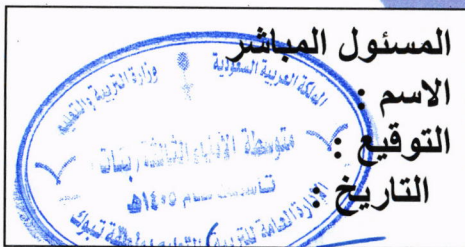 المسئول المباشر
الاسم :
التوقيع :
التاريخ :
المملكة العربية السعودية
وزارة التربية والتعليم
متوسطة الأبناء الثالثة (بنات)
تأسست عام ١٤٠٥هـ
الإدارة العامة للتربية والتعليم بمنطقة تبوك